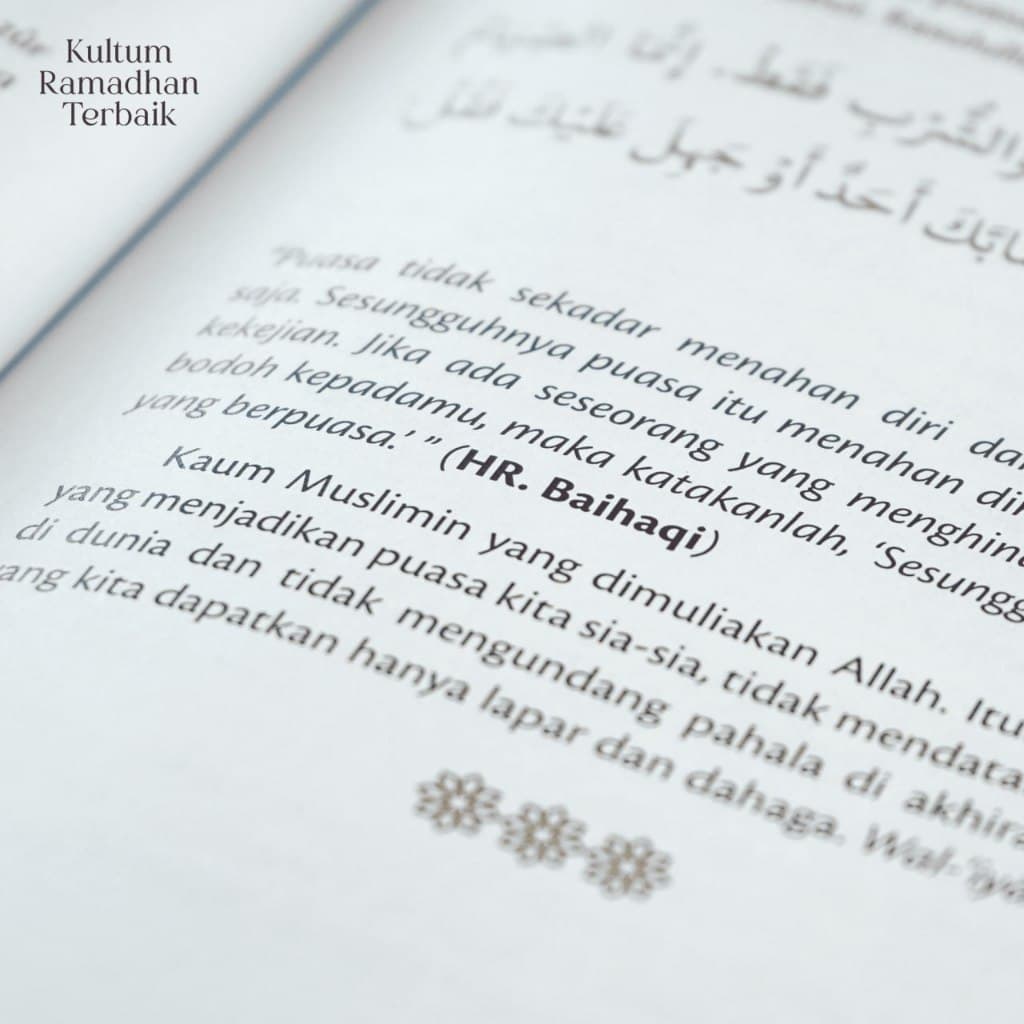 Kultum
Ramadhan
Terbaik
والشُّرْبِ فَقَطْ. إِنَّمَا الصِّيَامُ
سَابَّكَ أَحَدٌ أَوْ جَهِلَ عَلَيْكَ فَقُلْ
"Puasa tidak sekadar menahan diri dar
saja. Sesungguhnya puasa itu menahan dir
kekejian. Jika ada seseorang yang menghina
bodoh kepadamu, maka katakanlah, 'Sesungg
yang berpuasa.' " (HR. Baihaqi)
Kaum Muslimin yang dimuliakan Allah. Itu
yang menjadikan puasa kita sia-sia, tidak mendata
di dunia dan tidak mengundang pahala di akhira
yang kita dapatkan hanya lapar dan dahaga. Wal-'iyā